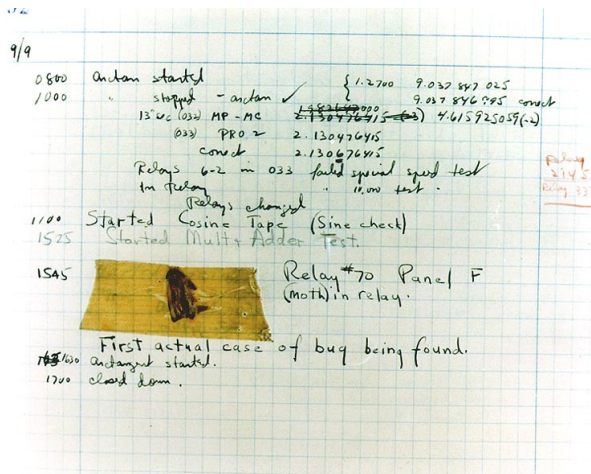 9/9
0800 arctan started { 1.2700 9.037 847 025
1000 " stopped - arctan ✓ 9.037 846 995 conect
13" uc (032) MP - MC 2.130476415 (-3) 4.615925059(-2)
(033) PRO 2 2.130476415
conect 2.130676415
Relays 6-2 in 033 failed special speed test
In Relay " 10,000 test.
Relay
2145
Relay 337
Relays changed
1100 Started Cosine Tape (Sine check)
1525 Started Mult + Adder Test.
1545 Relay #70 Panel F
(moth) in relay.
First actual case of bug being found.
1630 arctangent started.
1700 closed down.